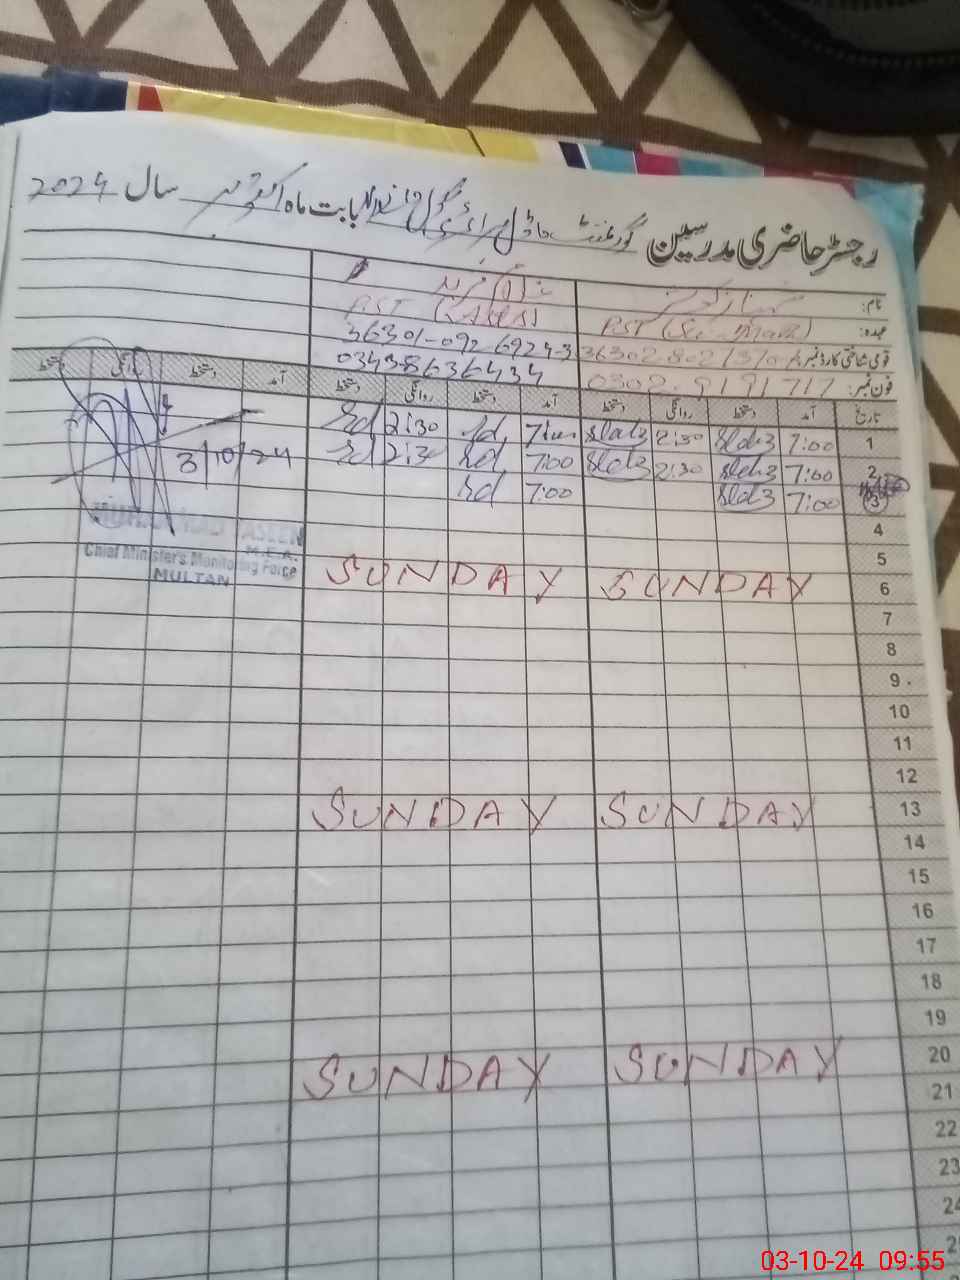 رجسٹر حاضری مدرسین گورنمنٹ ماڈل پرائمری سکول بابت ماہ اکتوبر سال 2024
نام:
عہدہ: PST (Sci-Math) PST
قومی شناختی کارڈ نمبر 36301-092-6924-3
فون نمبر: 0302-9191717 03438636434
تاریخ آمد دستخط روانگی دستخط آمد دستخط روانگی دستخط آمد دستخط روانگی دستخط
1 7:00 2:30 2:30
2 7:00 2:30 7:00 2:30
3 7:00 7:00
3/10/24
4
M.E.A.
Chief Minister's Monitoring Force
MULTAN
5
6 SUNDAY SUNDAY
7
8
9
10
11
12
13 SUNDAY SUNDAY
14
15
16
17
18
19
20 SUNDAY SUNDAY
21
22
23
24
03-10-24 09:55